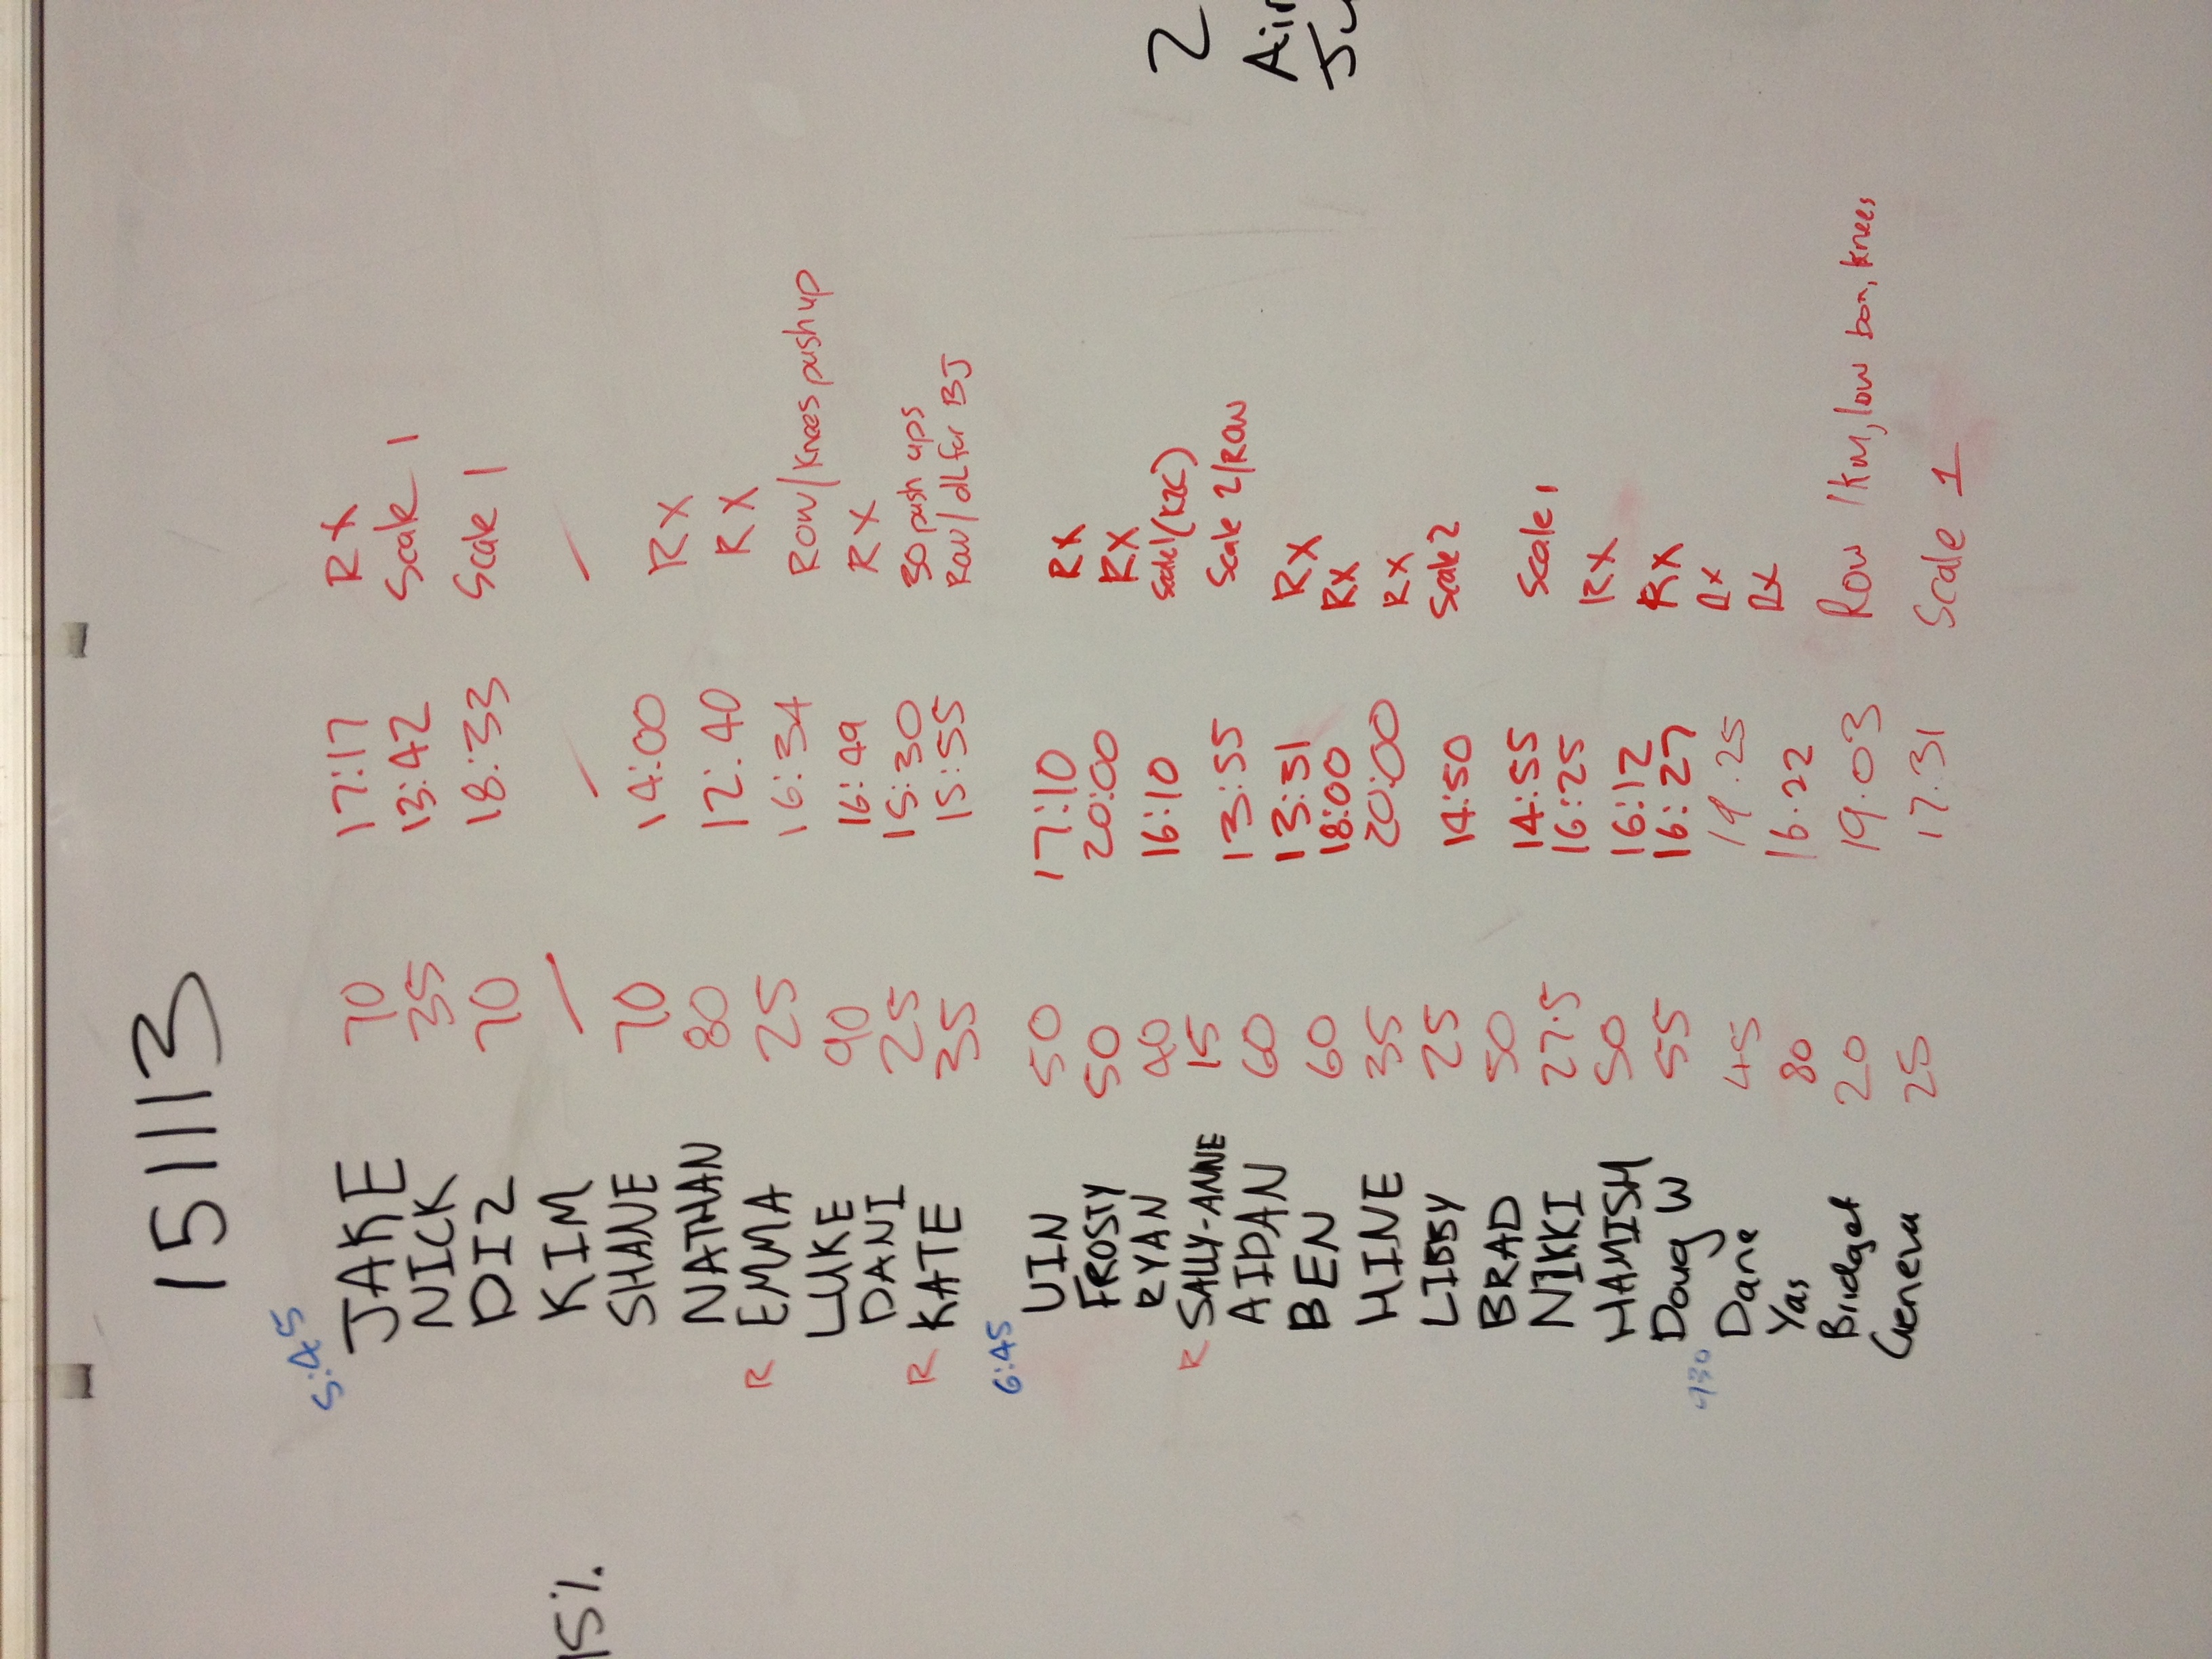 151113
5:45
JAKE 70 17:17 RX
NICK 35 13:42 Scale 1
DIZ 70 18:33 Scale 1
KIM / / /
SHANE 70 14:00 RX
NATHAN 80 12:40 RX
R EMMA 25 16:34 Row/Knees pushup
LUKE 90 16:49 RX
DANI 25 15:30 30 push ups
R KATE 35 15:55 Row/dL for BJ
6:45
VIN 50 17:10 RX
FROSTY 50 20:00 RX
RYAN 40 16:10
R SALLY-ANNE 15 13:55 Scale 2/ROW
AIDAN 60 13:31 RX
BEN 60 18:00 RX
HINE 35 20:00 RX
LIBBY 25 14:50 Scale 2
BRAD 50 14:55 Scale 1
NIKKI 27.5 16:25 RX
HAMISH 50 16:12 RX
Doug W 55 16:27 Rx
930
Dane 45 19.25 Rx
Yas 80 16.22
Bridget 20 19.03 Row 1km, low box, knees
Geneva 25 17.31 Scale 1
15%
2